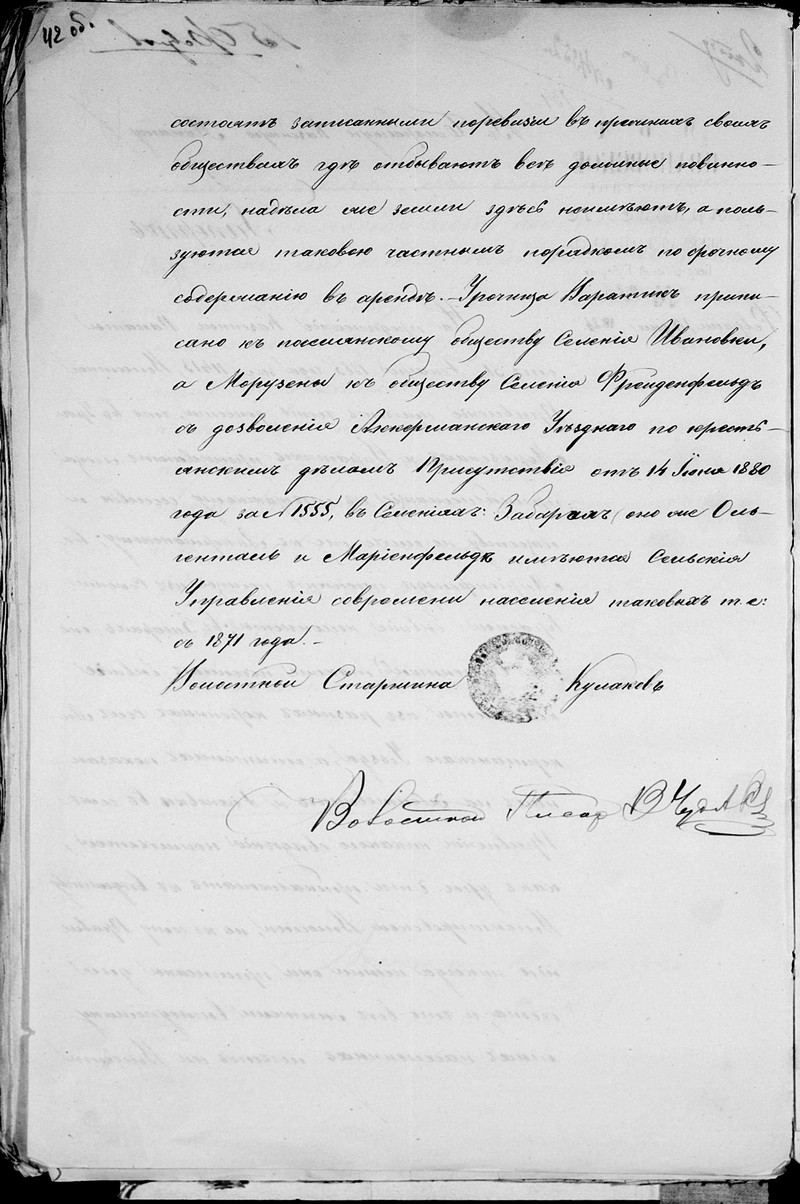 42 об.
состоятъ записанными поревизи въ прочихъ своихъ
обществахъ гдѣ отбываютъ всѣ должные повинно-
сти, надѣла же земли здѣсь неимѣютъ, а поль-
зуются таковою частнымъ порядкомъ по срочному
содержанію въ арендѣ. - Урочища Паратикъ припи-
сано къ поселянскому обществу Селенія Ивановки,
аМорузены къ обществу Селенія Фройденфельдъ
съ дозволенія Аккерманскаго Уѣзднаго по крестъ-
янскимъ дѣламъ Присутствія отъ 14 Іюня 1880
года за № 1555, въ Селеніяхъ: Забарахъ (оно же Оль-
генталь и Маріенфельдѣ имѣются Сельскія
Управленія современи населенія таковыхъ т. е:
съ 1871 года. -
Волостной Старшина Кулаковъ
Волостной Писар